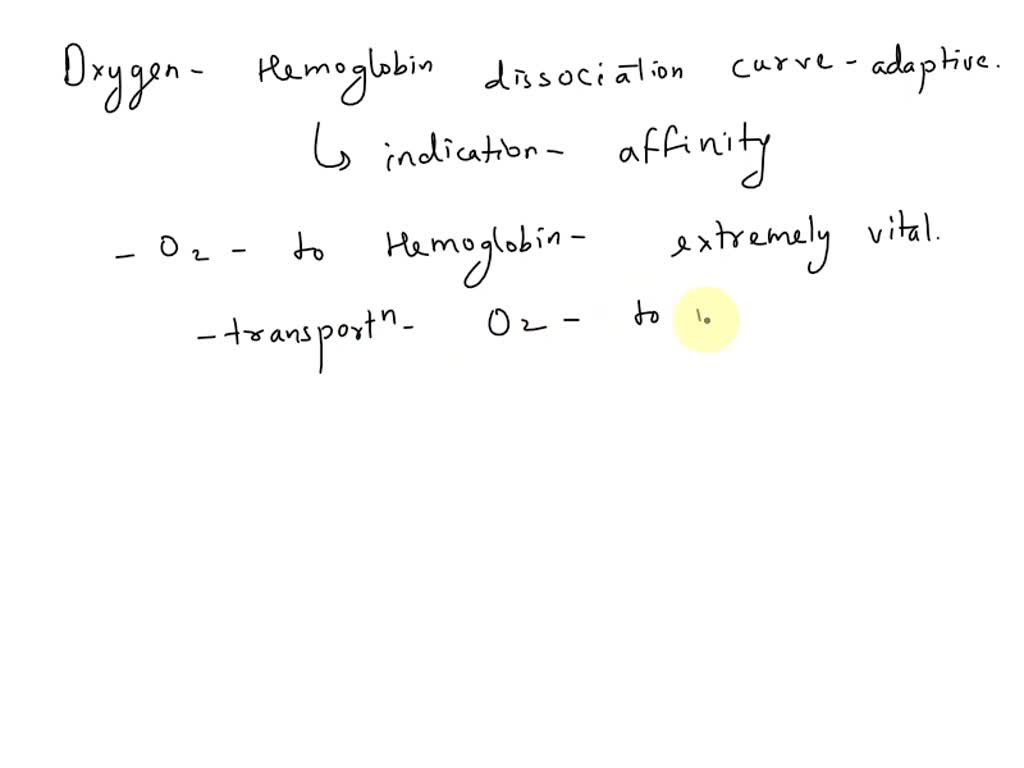 Oxygen - Hemoglobin dissociation curve - adaptive.
↳ indication - affinity
- O2 - to Hemoglobin - extremely vital.
- transportⁿ - O2 - to